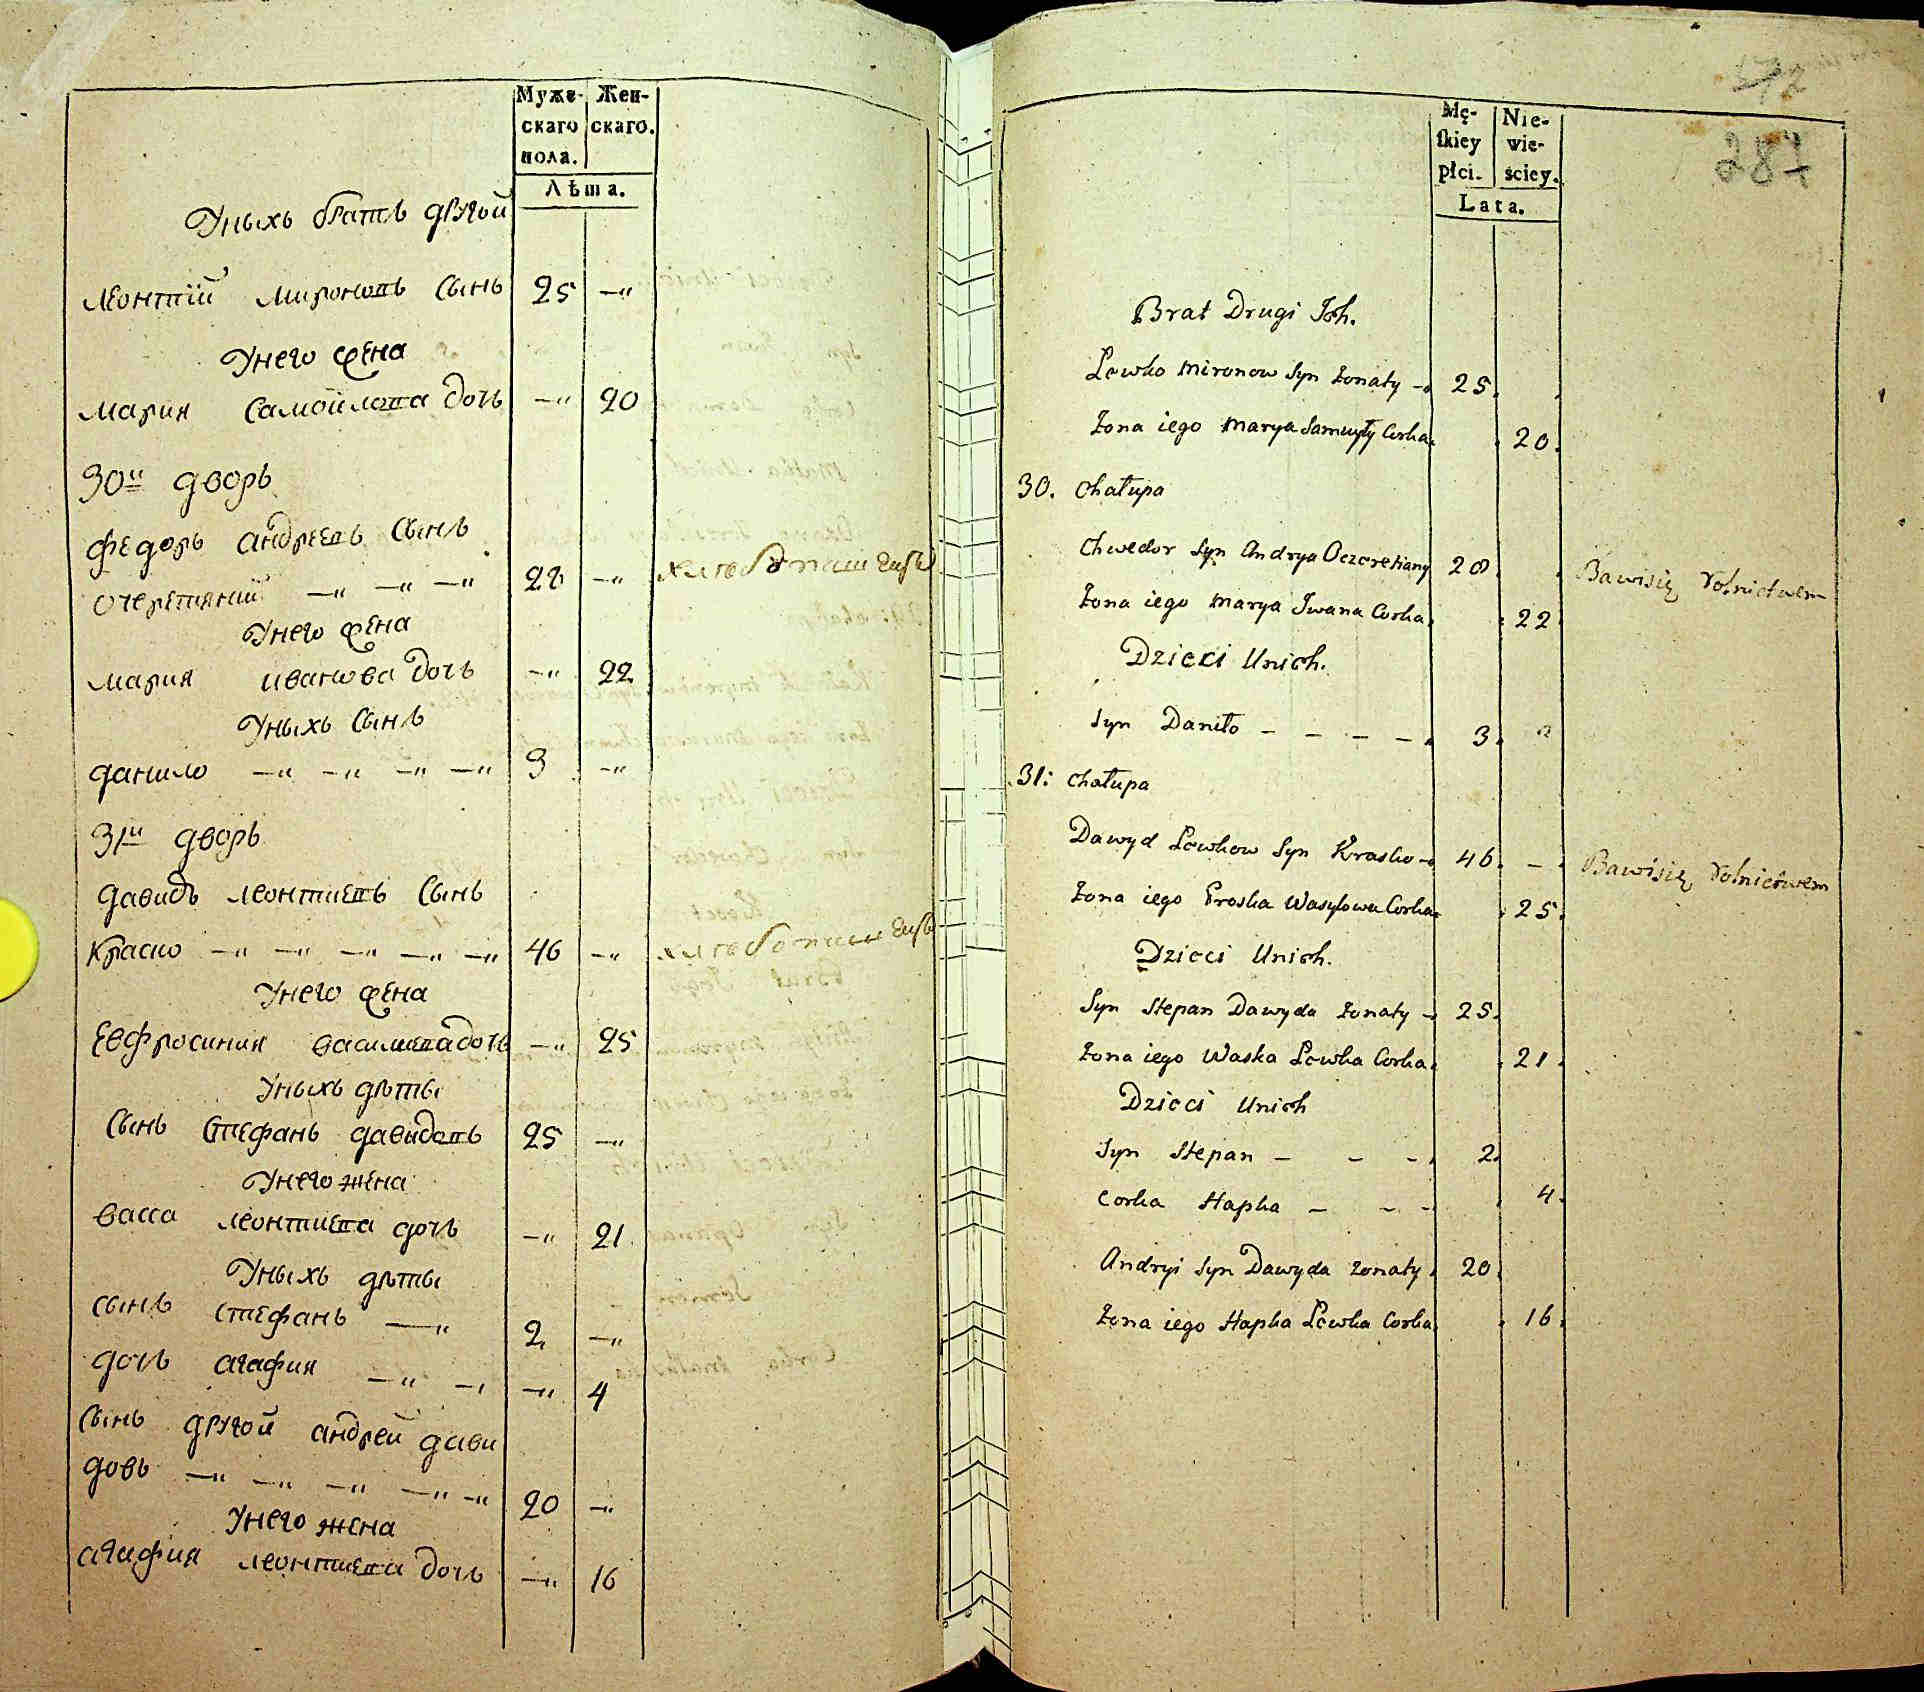 Муже-
скаго
пола.
Жен-
скаго.
Лѣта.
Уныхъ братъ другой
Леонтїй Мироновъ сынъ 25 —"
Унего жена
Мария Самойлова дочь —" 20
30й дворъ
Федоръ Андреевъ сынъ
Очеретяний —" —" —" 28 —" хлебопашець
Унего жена
Мария Иванова дочь —" 22
Уныхъ сынъ
Данило —" —" —" —" 3 —"
31й дворъ
Давидъ Леонтиевъ сынъ
Краско —" —" —" —" —" 46 —" хлебопашець
Унего жена
Евфросиния василиева дочь —" 25
Уныхъ дѣти
Сынъ Стефанъ Давидовъ 25 —"
Унего жена
Васса Леонтиева дочь —" 21
Уныхъ дѣти
сынъ Стефанъ —" 2 —"
дочь Агафия —" —" —" 4
Сынъ другой андрей дави
довъ —" —" —" —" —" 20 —"
Унего жена
Агафия Леонтиева дочь —" 16
287
Mę-
skiey
płci.
Nie-
wie-
ściey.
Lata.
Brat Drugi Ich.
Lewko Mironow Syn żonaty — 25
Żona iego Marya Samuyły Corka 20
30. Chałupa
Chwedor Syn Andrya Oczeretiany 28 Bawisię rolnictwem
Żona iego Marya Iwana Corka 22
Dzieci Unich.
Syn Daniło — — — — 3
31. Chałupa
Dawyd Lewkow Syn Krasko — 46 — Bawisię rolnictwem
Żona iego Proska Wasylowa Corka 25
Dzieci Unich.
Syn Stepan Dawyda żonaty — 25
Żona iego Waska Lewka Corka 21
Dzieci Unich
Syn Stepan — — — 2
Corka Hapka — — — 4
Andryi Syn Dawyda żonaty 20
Żona iego Hapka Lewka Corka 16